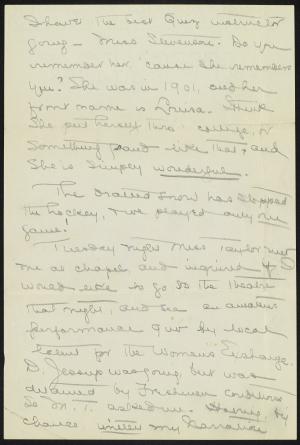 I have the best Quiz instructor
going — Miss Stevenson. Do you
remember her, 'cause she remembers
you? She was in 1901, and her
front name is Louisa. Think
she put herself thro' college, or
something grand like that, and
she is simply wonderful.
The snow has stopped
the hockey, & we played only one
game!
Tuesday night Miss Taylor met
me at chapel and inquired if I
would like to go to the theatre
that night, and see an amateur
performance given by local
talent for the Woman's Exchange.
D. Jessup was going, but was
detained by Freshman conditions
So M. T. asked me. Having by
chance my